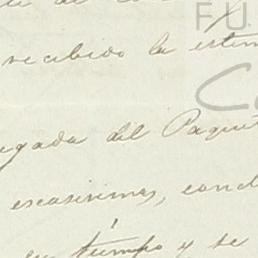 recibido la estim
FU
C
egada del Paquet
escasisimas, cond
tiempo y se